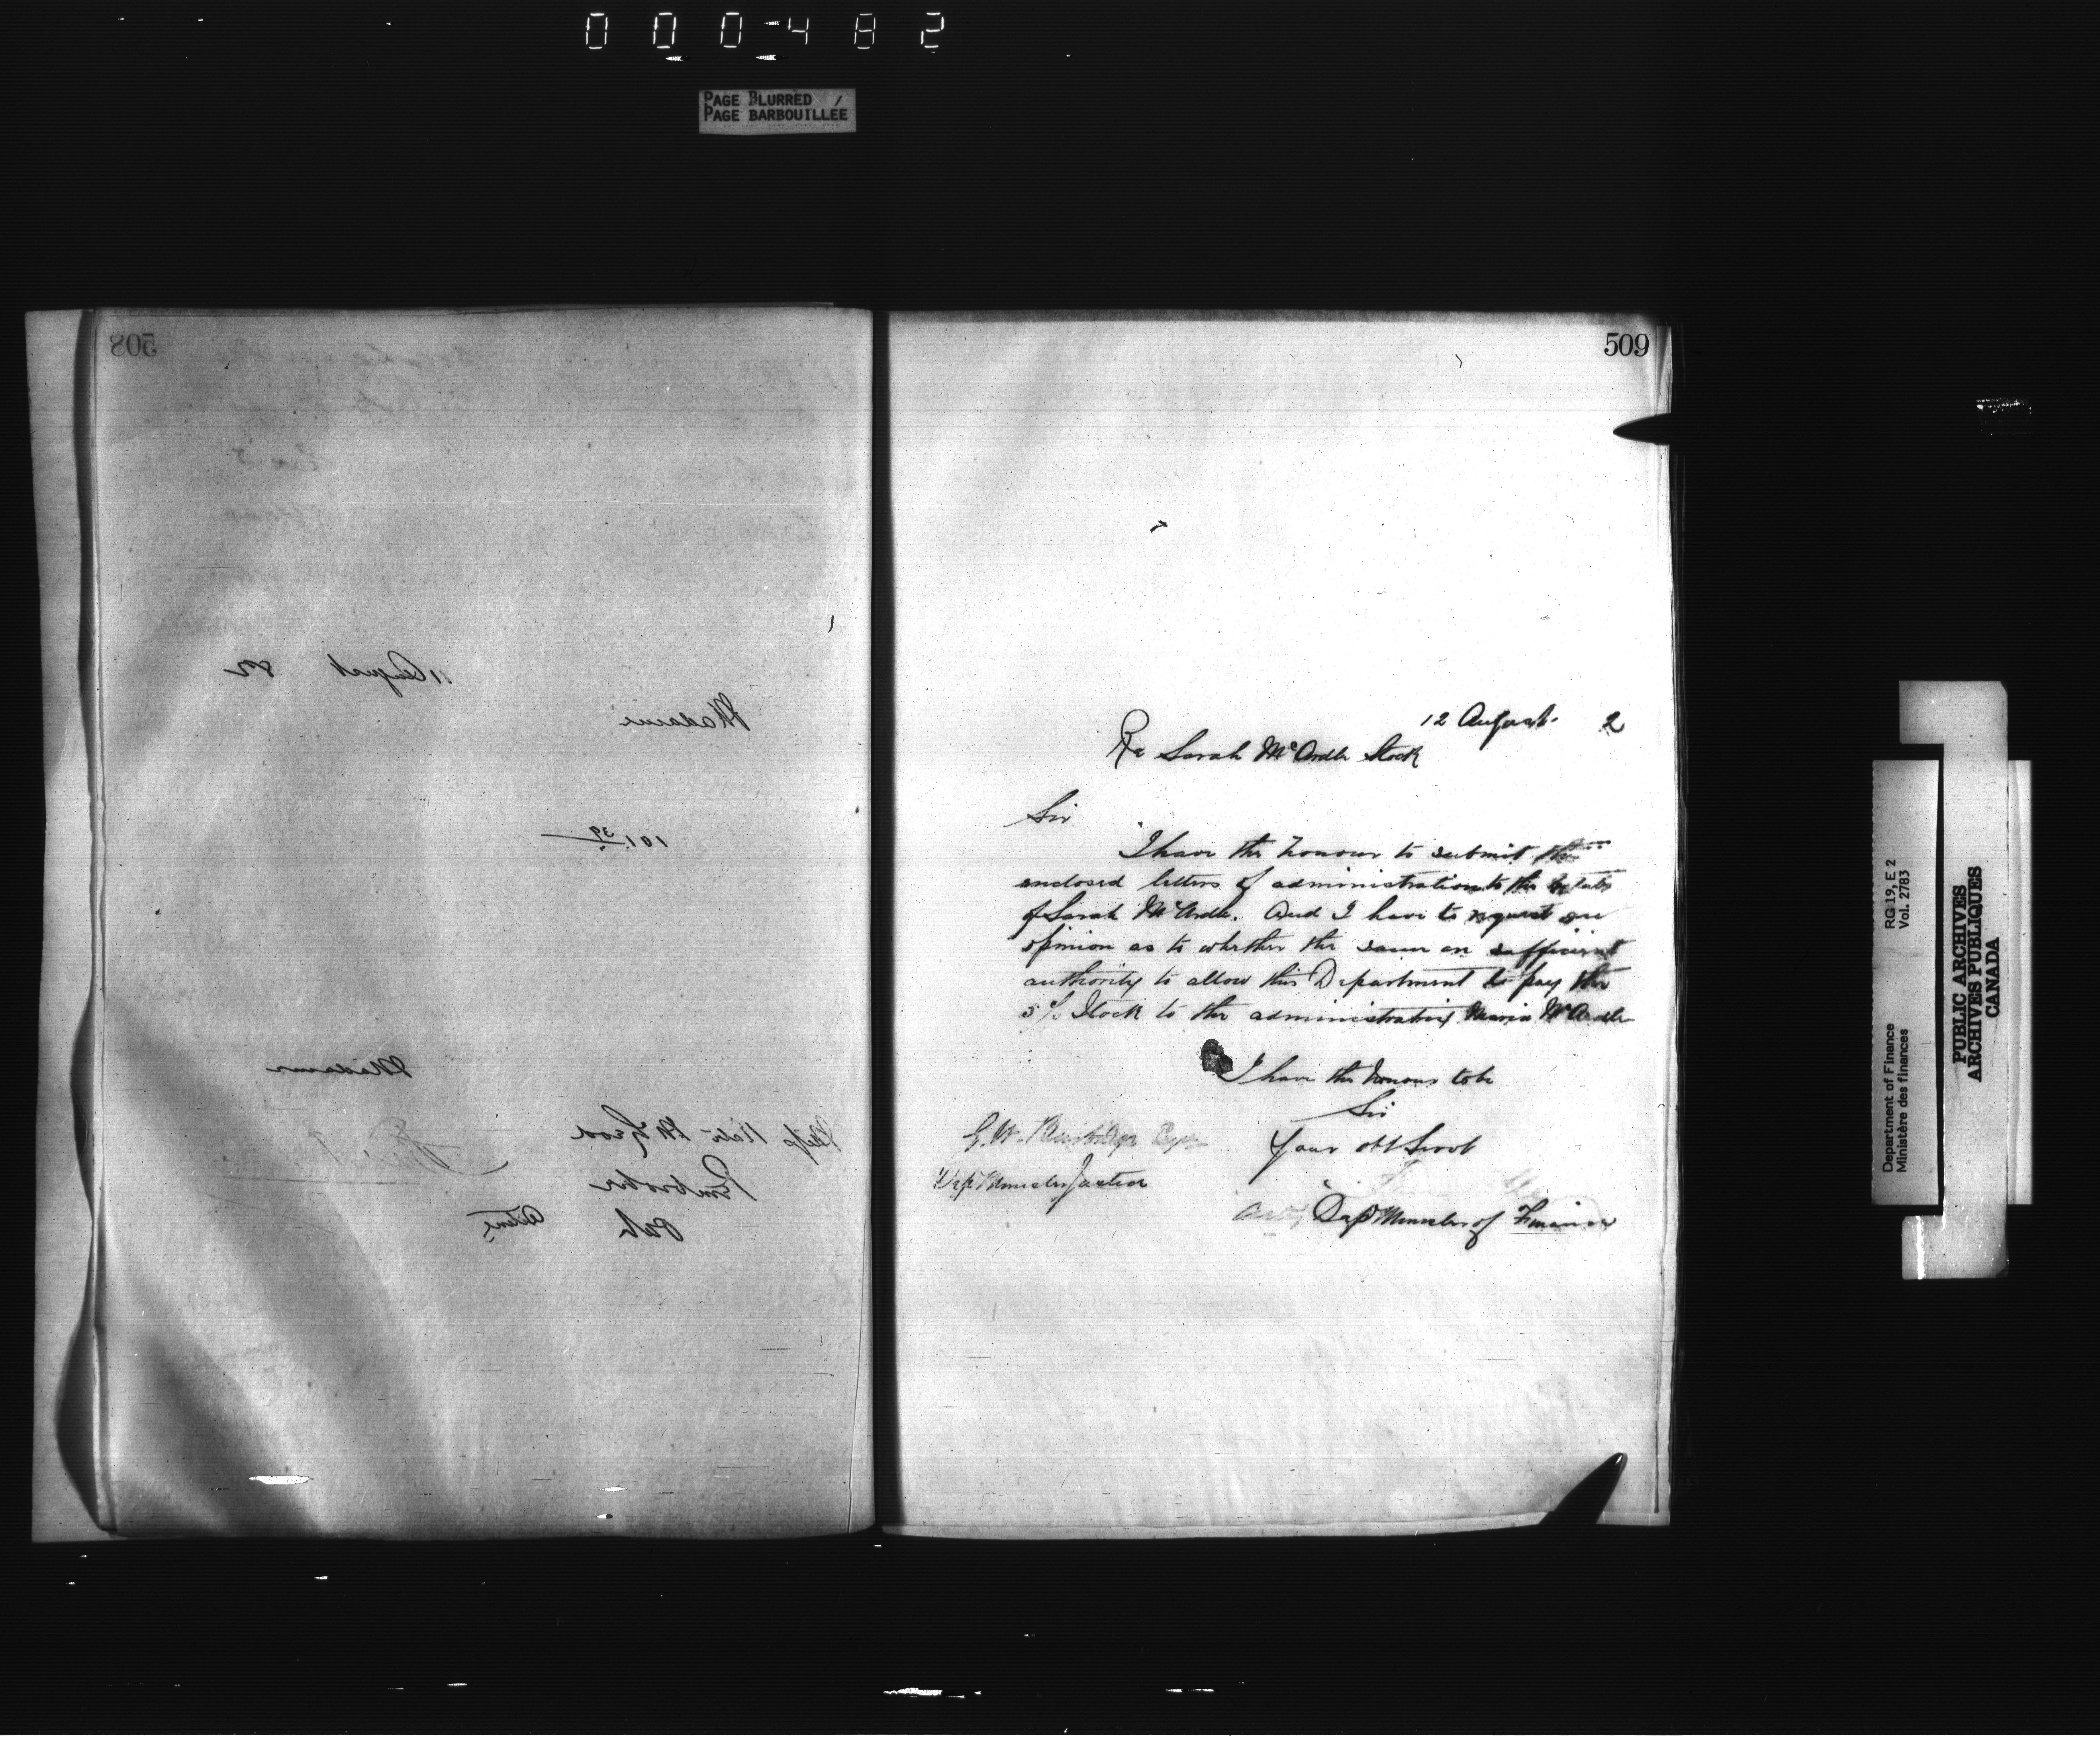 000-482
PAGE BLURRED /
PAGE BARBOUILLEE
508
11 August 82
Madame
101.39
Madame
Pembroke
Ont
509
12 August 2
Re Sarah McArdle Stock
Sir
I have the honour to submit the
enclosed letters of administration to the Estate
of Sarah McArdle. And I have to request an
opinion as to whether the same are sufficient
authority to allow this Department to pay the
5% Stock to the administratrix Maria McArdle
I have the honour to be
Sir
Your obt Servt
G. W. Burbidge Esqr
Dep Minister Justice
Actg Dep Minister of Finance
Department of Finance
Ministère des finances
RG 19, E 2
Vol. 2783
PUBLIC ARCHIVES
ARCHIVES PUBLIQUES
CANADA